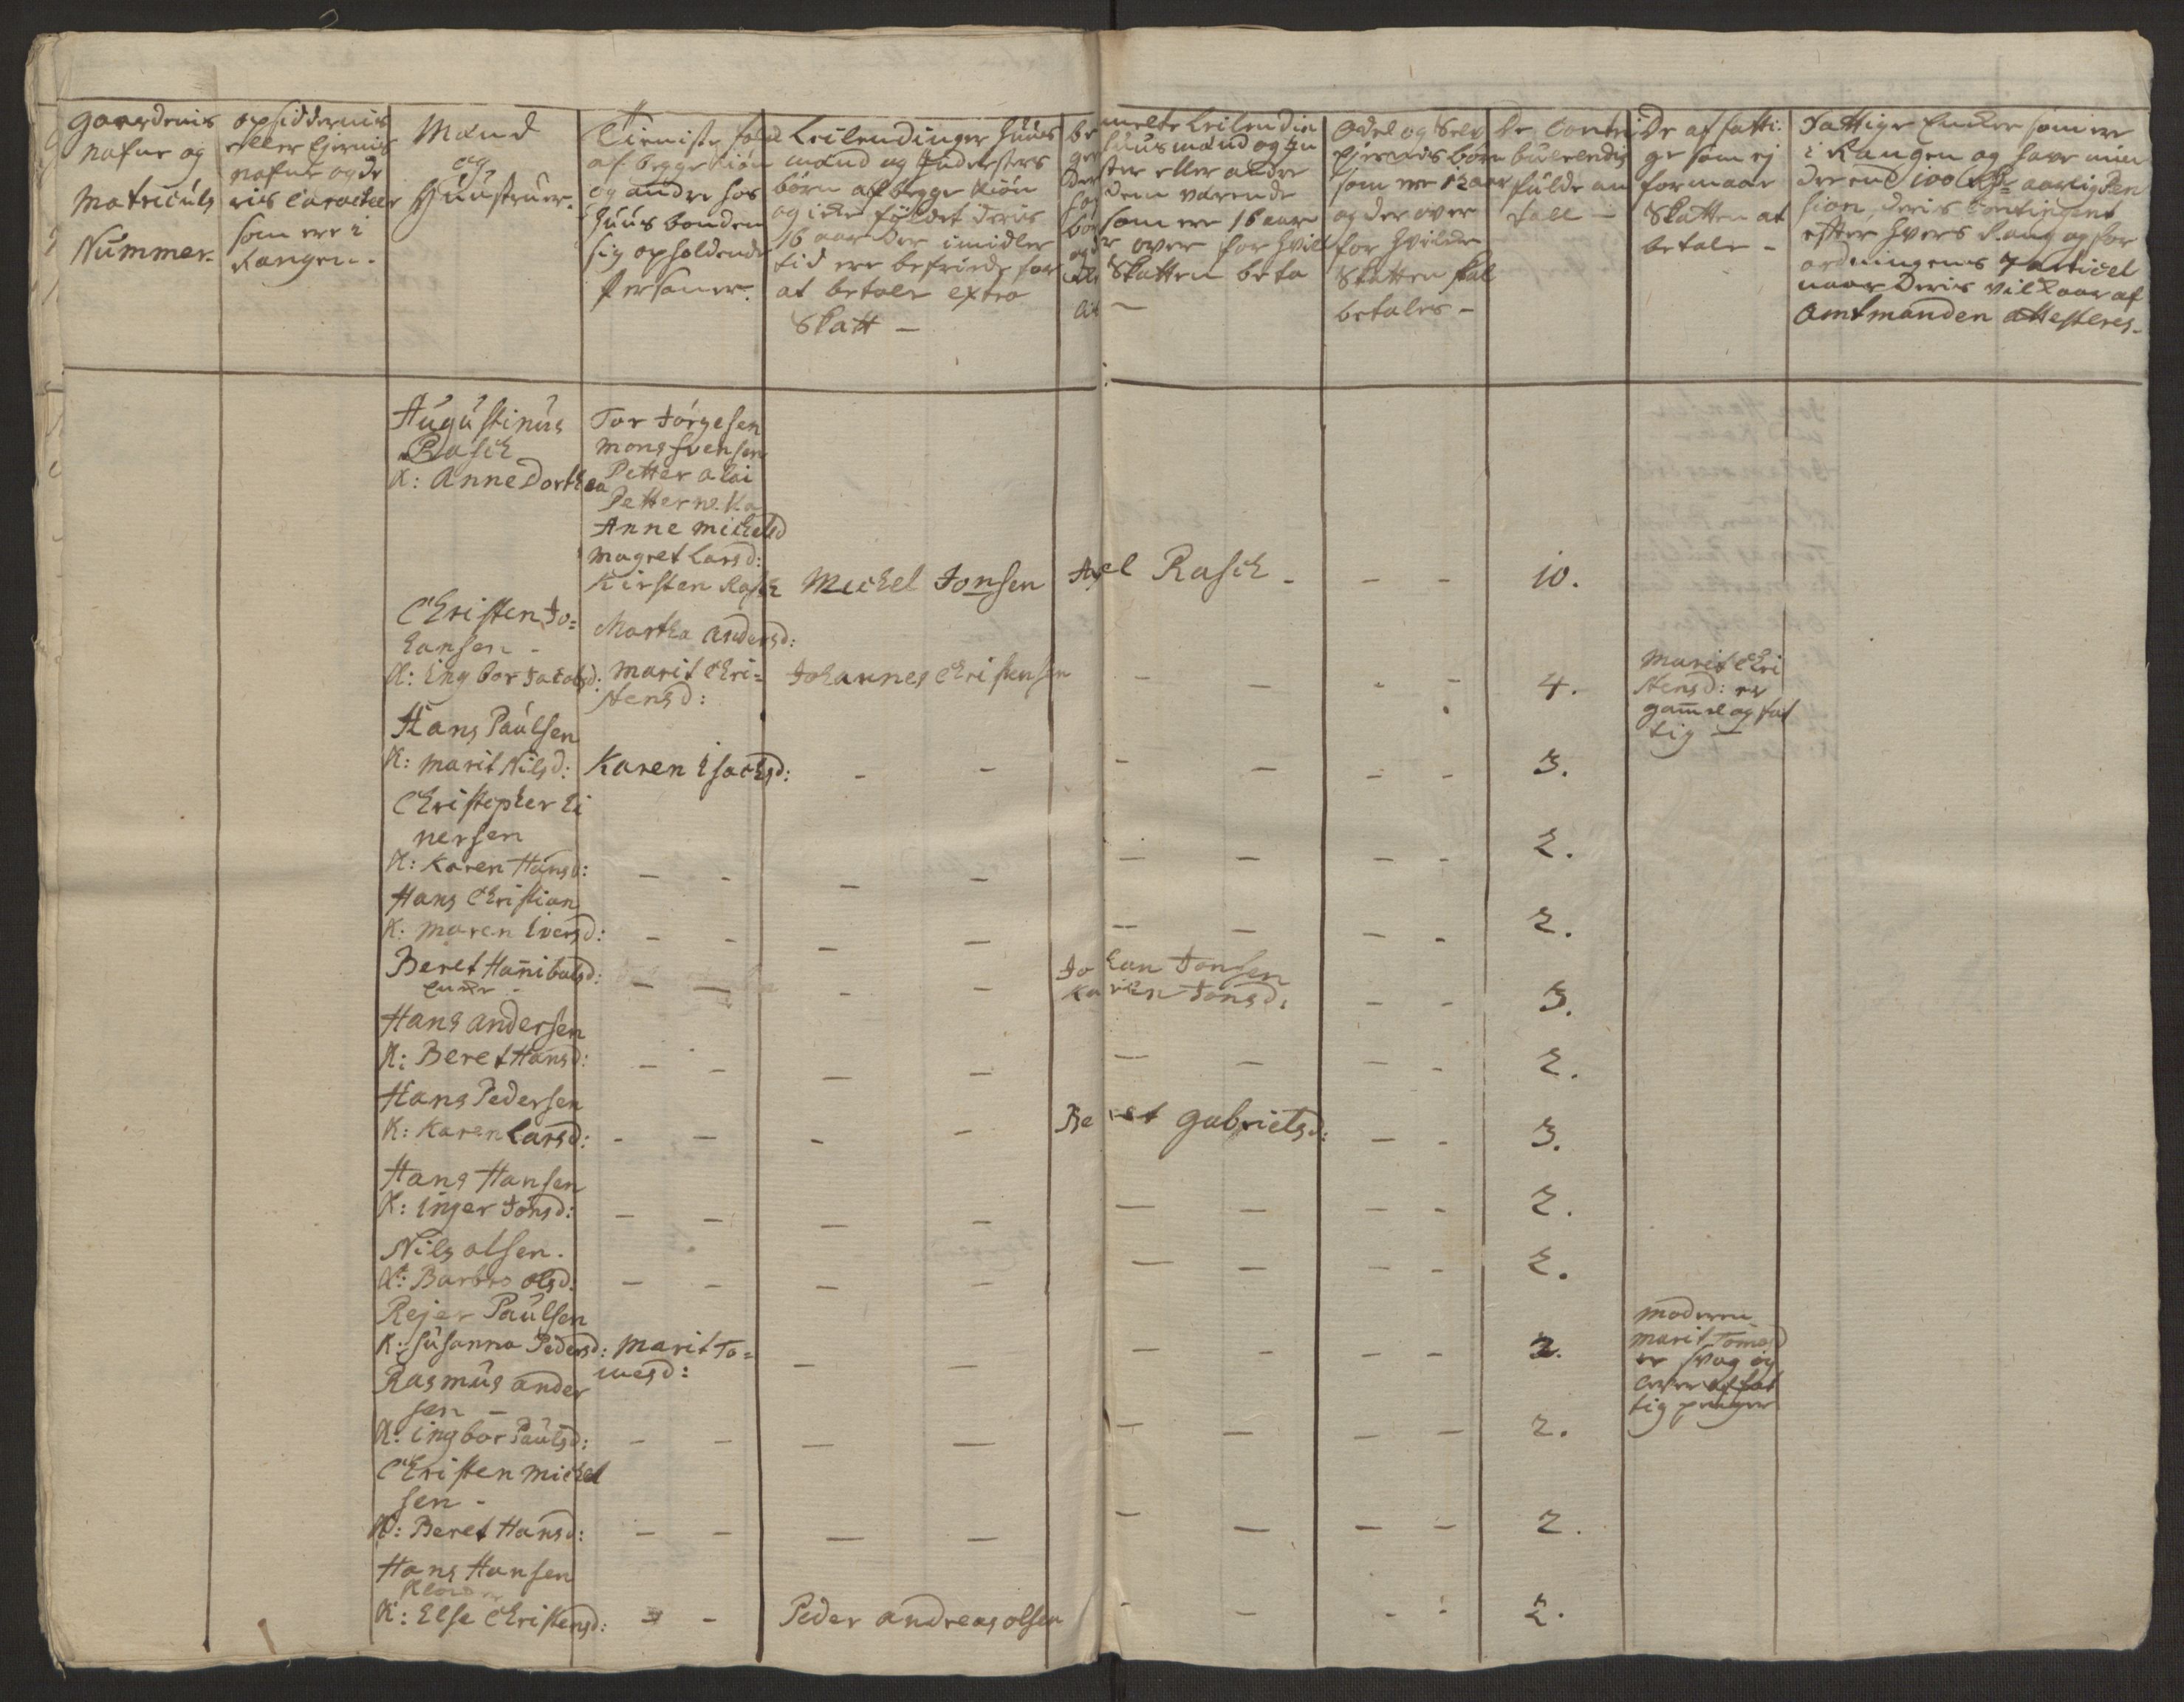 gaardenis
nafne og
Matriculs
Nummer.
opsiddernis
eller Ejernis
nafne og de
ris Caracteer
som ere i
Rangen.
Mænd
og
Hüüstruer.
Tieniste folck
af begge Kiön
og andre hos
Huus bonden
sig opholdende
Personer.
Leilendinger Huus
mænd og Indersters
börn af begge Kiön
og icke fÿldet deris
16 aar der imidler
tid ere befriede for
at betale extra
Skatt -
melte Leilendin
huusmænd og In
ster eller andre
dem værende
som ere 16 aar
over for hvilcke
Skatten beta
-
Odel og Selv
Ejernis börn
som ere 12 aar
og der over
for hvilcke
Skatten skal
betales -
De Contri
buerendis
fulde an
tall -
De af fatti:
ge som ej
formaar
Skatten at
betale -
Fattige Encker som ere
i Rangen og have min
dre end 100 Rdr aarig Pen
sion, deris Contingent
efter hvers Rang og for
ordningens 7 articel
naar deris vilkaar af
Amtmanden attesteres.
Augustinus
Rasch
K: Anne Dorthea
Tor Jörgesen
Mons Svensen
Petter olai
Petter
Anne Michelsd
Magret Larsd:
Kirsten Rasch
Michel Jonsen
Axel Rasch - - -
10.
Christen Jo=
hansen -
K: Ingbor Jacobsd:
Martha Andersd:
Marit Chri=
stensd:
Johannes Christensen
- - - -
4.
Marit Chri
stensd: er
gamel og fat
tig -
Hans Paulsen
K: Marit Nilsd:
Karen Isachsd: - - - - - -
3.
Christopher Ei
nersen
K: Karen Hansd: - - - - - - - -
2.
Hans Christian
K: Maren Iversd: - - - - - - - -
2.
Beret Hanibalsd:
Encke -
- - - -
Johan Jonsen
Karen Jonsd: - -
3.
Hans Andersen
K: Beret Hansd: - - - - - - - -
2.
Hans Pedersen
K: Karen Larsd: - - - -
Beret Gabrielsd: - -
3.
Hans Hansen
K: Inger Jonsd: - - - - - - - -
2.
Nils olsen.
K: Barbro olsd: - - - - - - - -
2.
Rejer Paulsen
K: Susanna Pedersd:
Marit To=
mesd: - - - - - -
2.
Moderen
Marit Tomasd
er svag og
lever af fat
tig penger
Rasmus Ander
sen -
K: Ingbor Paulsd: - - - - - - - -
2.
Christen Michel
sen -
K: Beret Hansd: - - - - - - - -
2.
Hans Hansen
K: Else Christensd: - -
Peder Andreas olsen
- - - -
2.